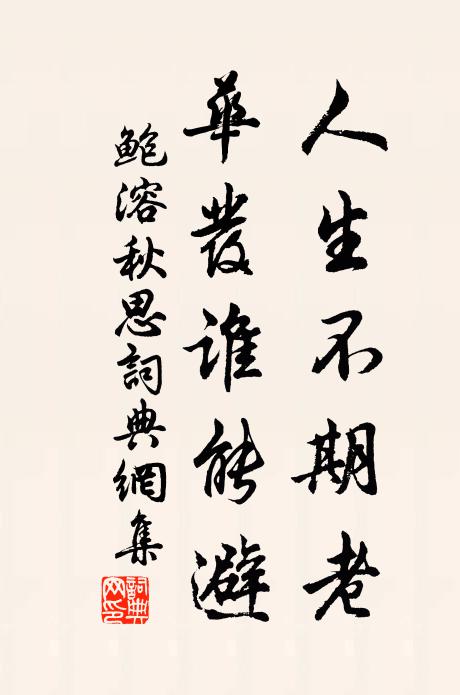 人生不期老
華發誰能避
鲍溶秋思詞典網集
詞典
网印